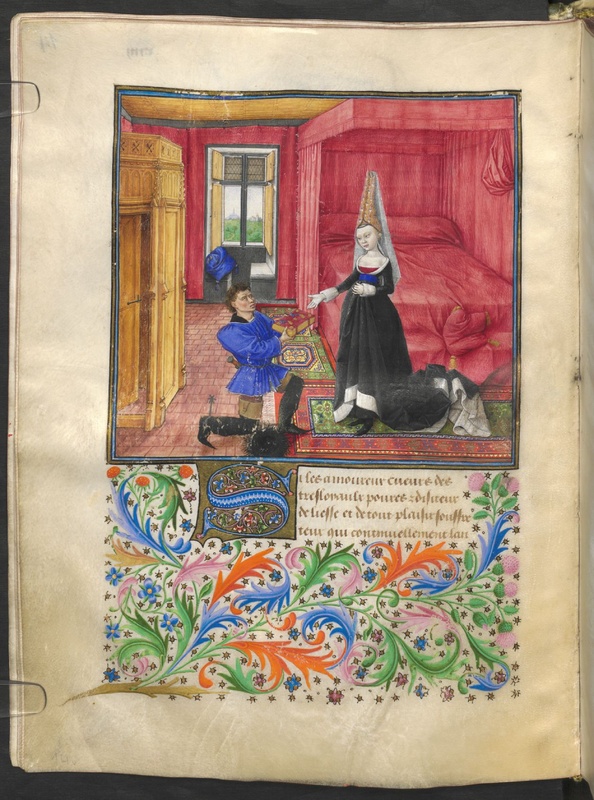 Si les amoureux cueurs des
tresloyaulx poures & disiteur
de liesse et de tout plaisir souffre
teux qui continuellement lan